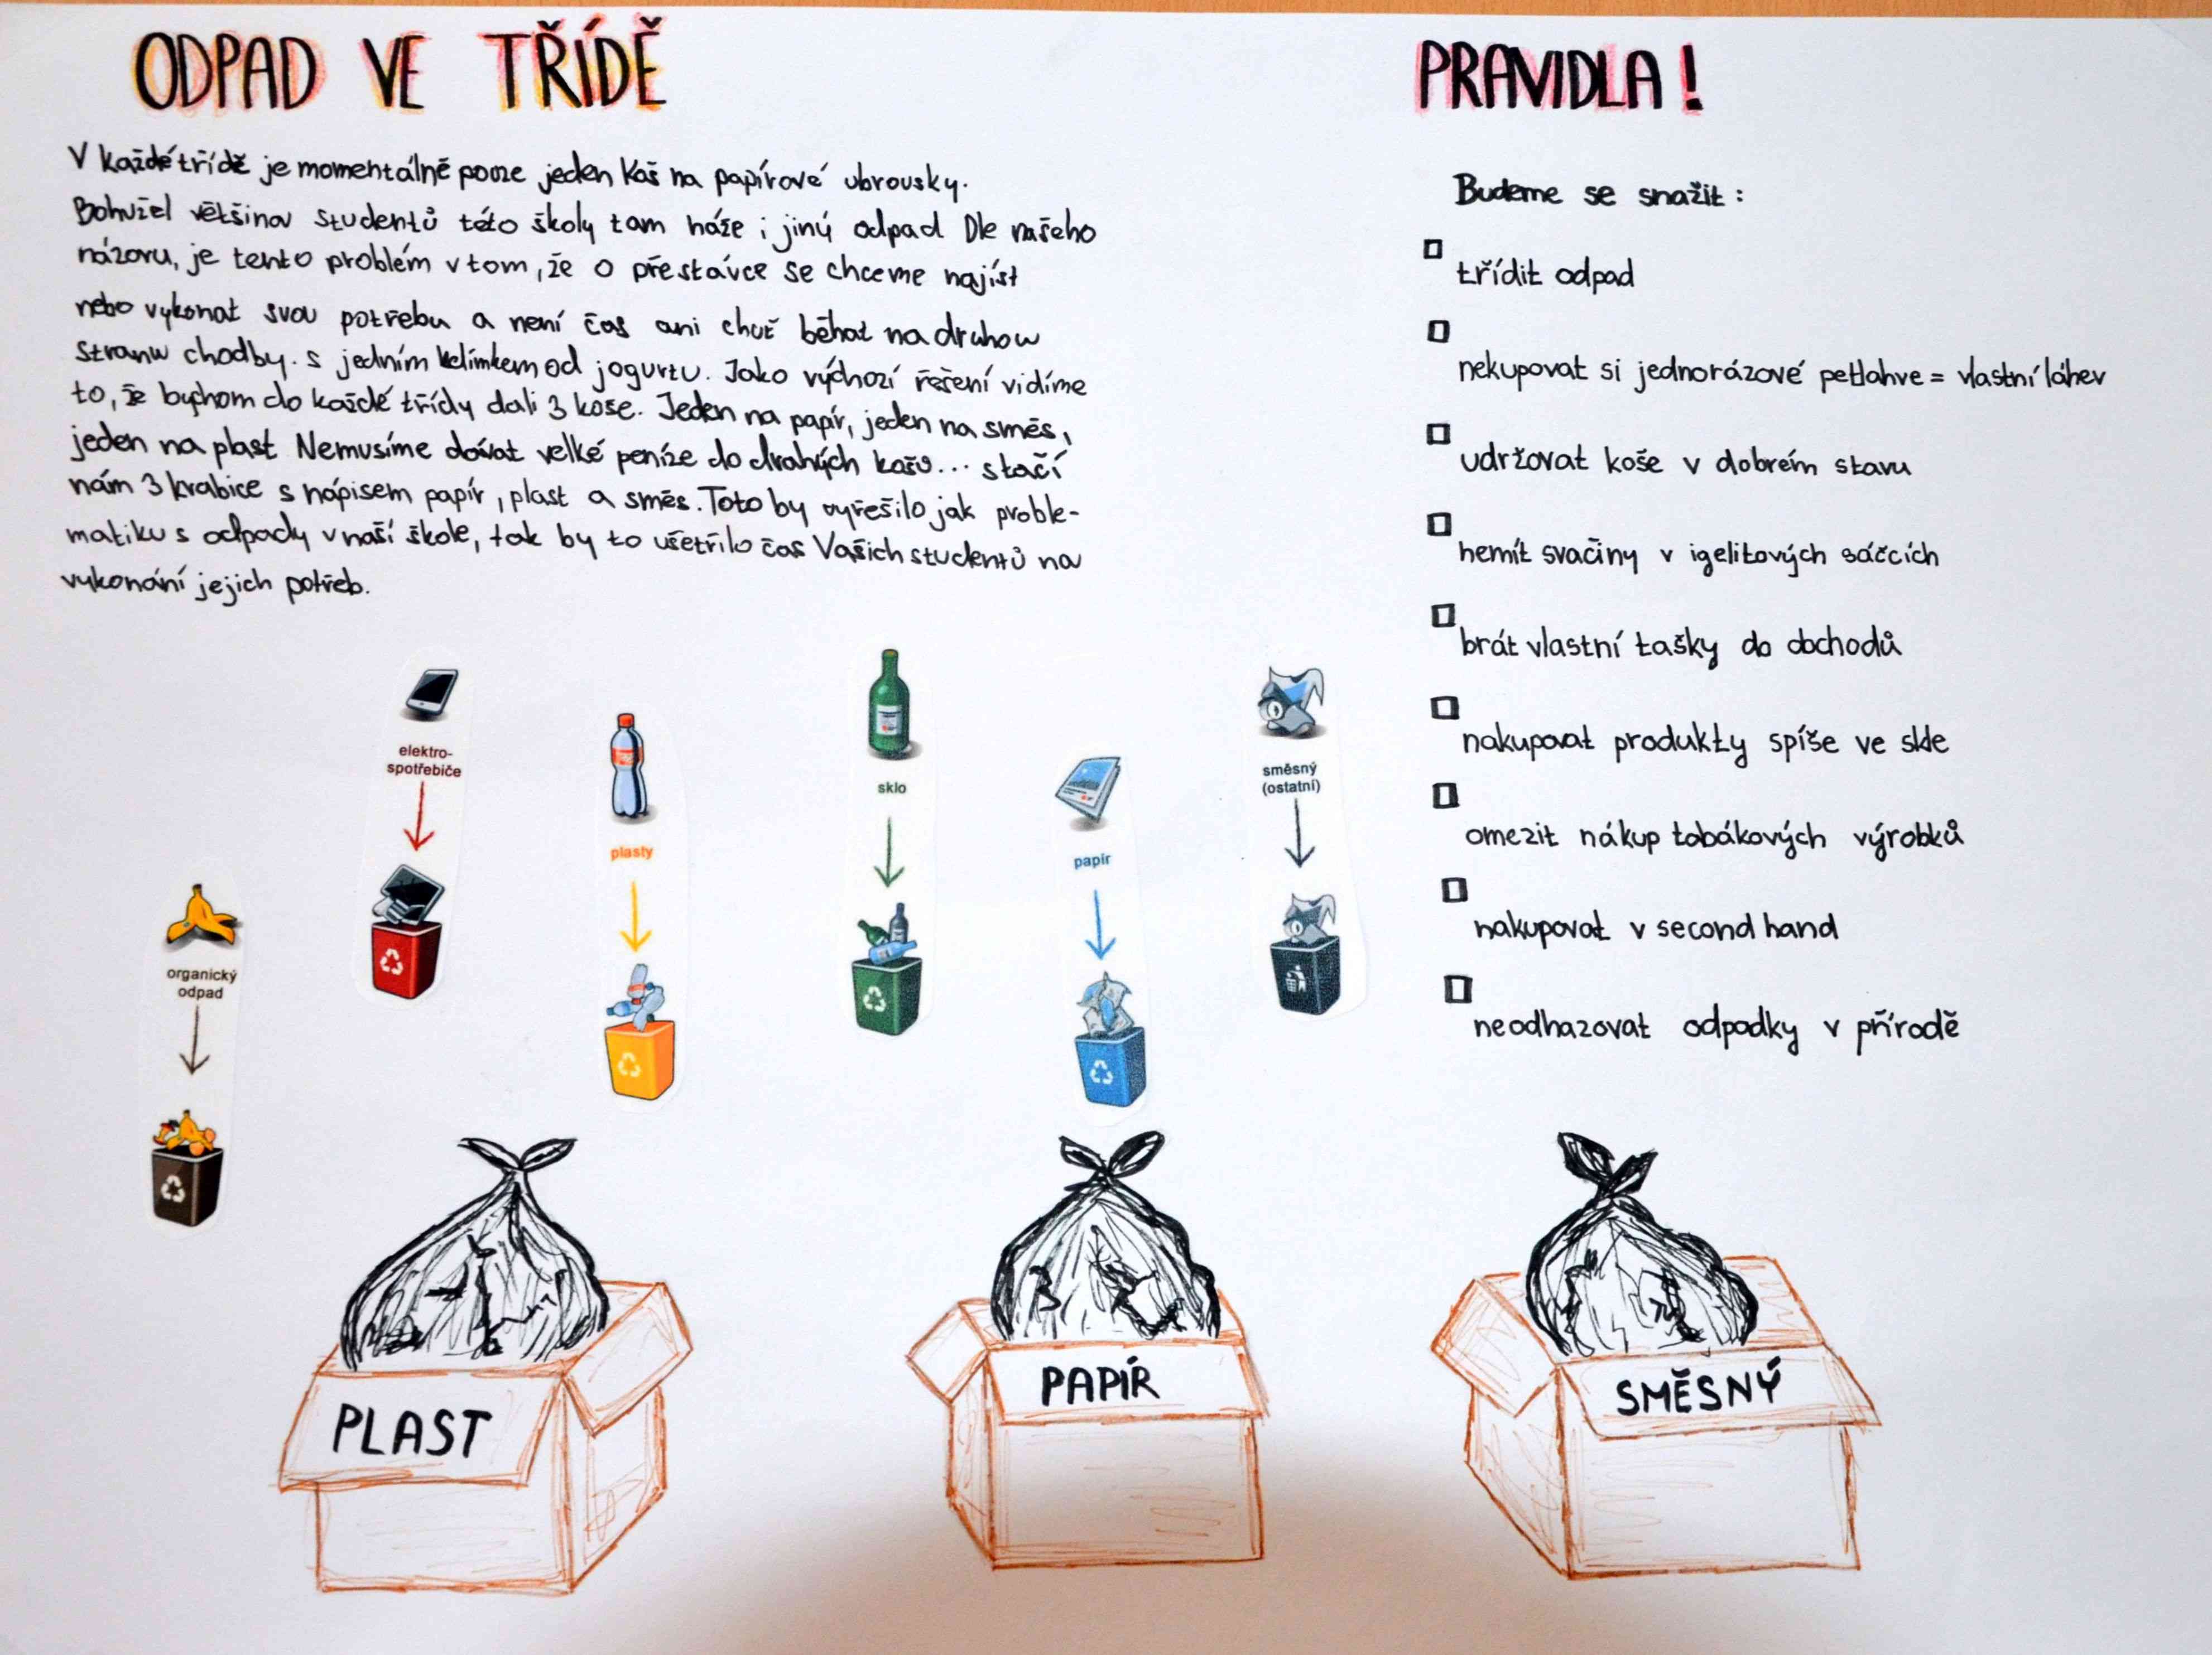 ODPAD VE TŘÍDĚ
V každé třídě je momentálně pouze jeden koš na papírové ubrousky.
Bohužel většinou studentů této školy tam háže i jiný odpad Dle našeho
názoru, je tento problém v tom, že o přestávce se chceme najíst
nebo vykonat svou potřebu a není čas ani chuť běhat na druhou
stranu chodby. s jedním kelímkem od jogurtu. Jako výchozí řešení vidíme
to, že bychom do každé třídy dali 3 koše. Jeden na papír, jeden na směs,
jeden na plast Nemusíme dávat velké peníze do drahých košů... stačí
nám 3 krabice s nápisem papír, plast a směs. Toto by vyřešilo jak proble-
matiku s odpady v naší škole, tak by to ušetřilo čas Vašich studentů na
vykonání jejich potřeb.
PRAVIDLA!
Budeme se snažit:
třídit odpad
nekupovat si jednorázové petlahve = vlastní láhev
udržovat koše v dobrém stavu
nemít svačiny v igelitových sáčcích
brát vlastní tašky do obchodů
nakupovat produkty spíše ve skle
omezit nákup tabákových výrobků
nakupovat v second hand
neodhazovat odpadky v přírodě
organický
odpad
elektro-
spotřebiče
plasty
sklo
papír
směsný
(ostatní)
PLAST
PAPÍR
SMĚSNÝ